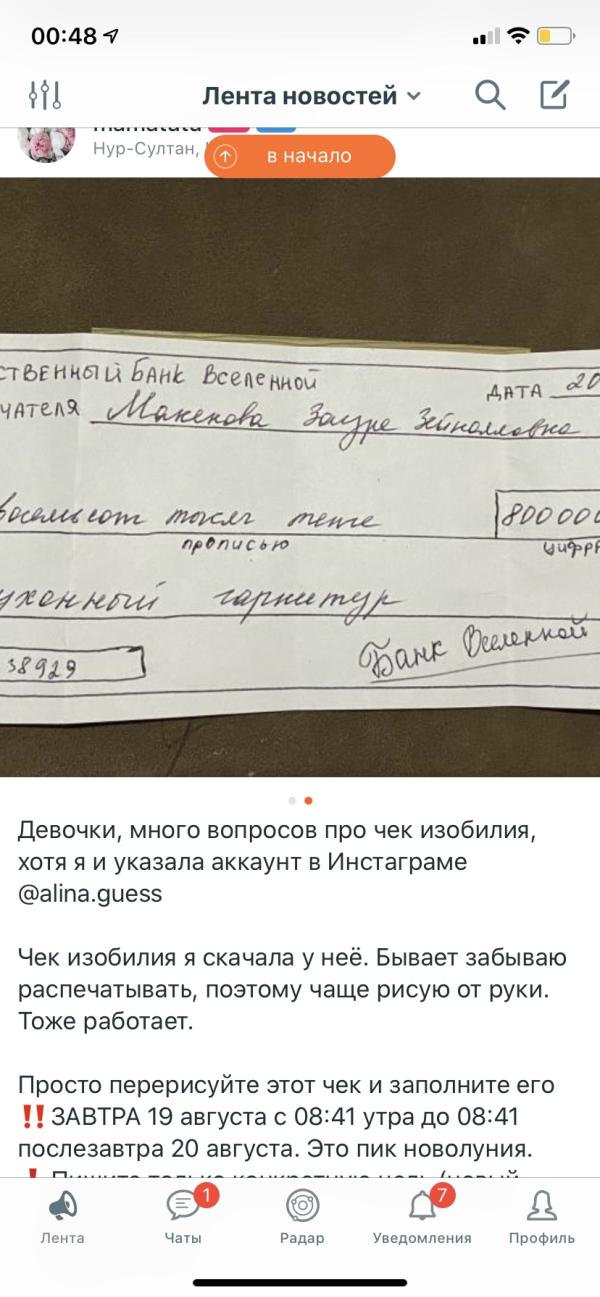 00:48
Лента новостей
mamatata
Нур-Султан,
в начало
ственный Банк Вселенной
ДАТА 20
чателя Макенова Зауре Зейнолловна
восемьсот тысяч тенге
800000
прописью
цифр
ухонный гарнитур
38929
Банк Вселенной
Девочки, много вопросов про чек изобилия,
хотя я и указала аккаунт в Инстаграме
@alina.guess
Чек изобилия я скачала у неё. Бывает забываю
распечатывать, поэтому чаще рисую от руки.
Тоже работает.
Просто перерисуйте этот чек и заполните его
‼️ЗАВТРА 19 августа с 08:41 утра до 08:41
послезавтра 20 августа. Это пик новолуния.
1
7
Лента
Чаты
Радар
Уведомления
Профиль